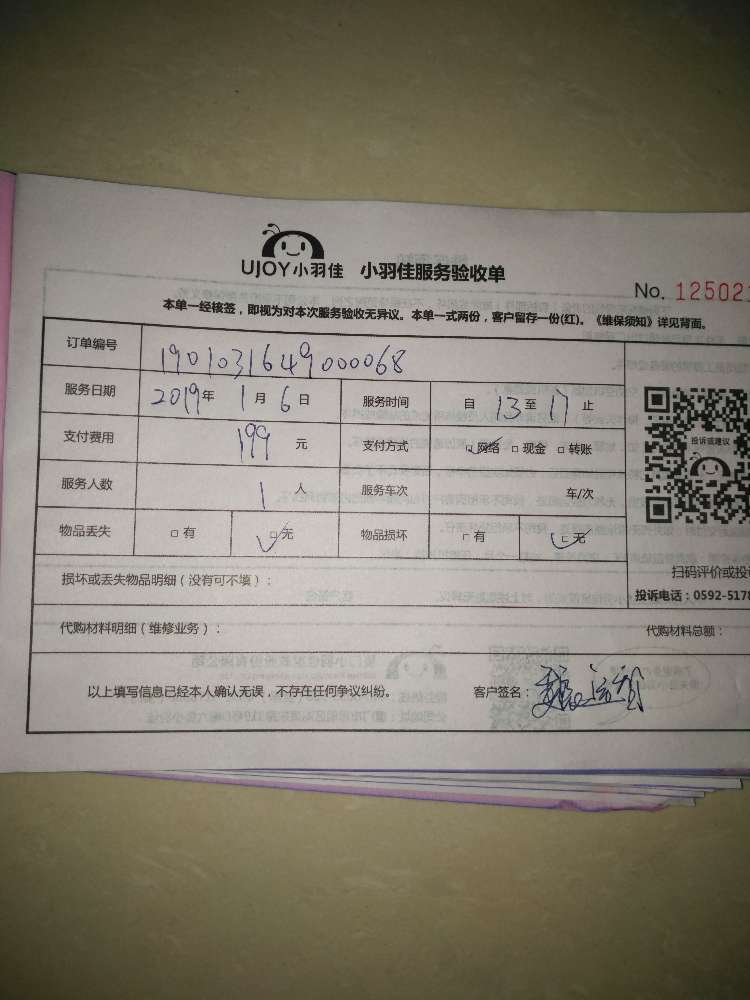 UJOY小羽佳 小羽佳服务验收单
No. 125021
本单一经核签，即视为对本次服务验收无异议。本单一式两份，客户留存一份(红)。《维保须知》详见背面。
订单编号 1901031649000068
服务日期 2019年 1月 6日 服务时间 自 13 至 17 止
支付费用 199 元 支付方式 ☑网络 □现金 □转账
投诉或建议
服务人数 1 人 服务车次 车/次
物品丢失 □有 ☑无 物品损坏 □有 ☑无
扫码评价或投诉
损坏或丢失物品明细（没有可不填）：
投诉电话：0592-5178
代购材料明细（维修业务）： 代购材料总额：
以上填写信息已经本人确认无误，不存在任何争议纠纷。 客户签名：